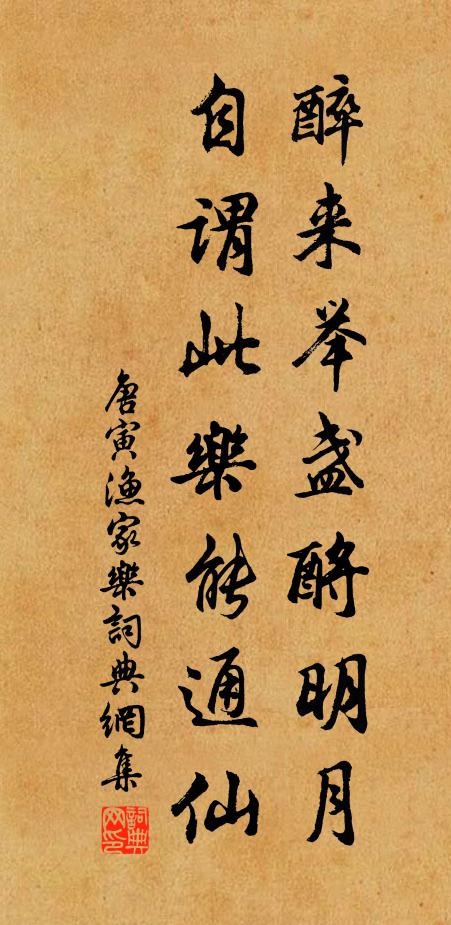 醉来举盏酹明月
自谓此樂能通仙
唐寅漁家樂詞典網集
詞典网印